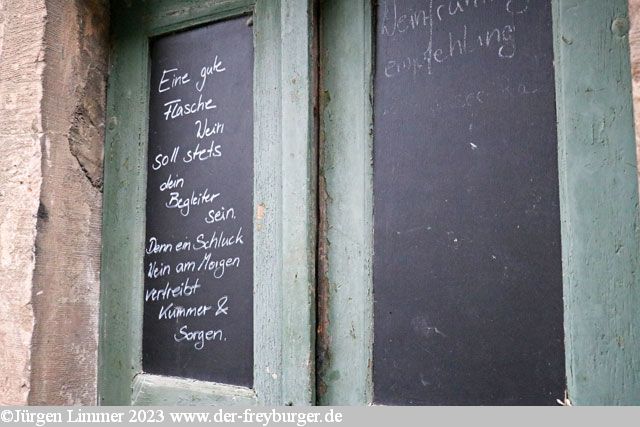 Eine gute
Flasche
Wein
soll stets
dein
Begleiter
sein.
Denn ein Schluck
Wein am Morgen
vertreibt
Kummer &
Sorgen.
empfehlung
©Jürgen Limmer 2023 www.der-freyburger.de